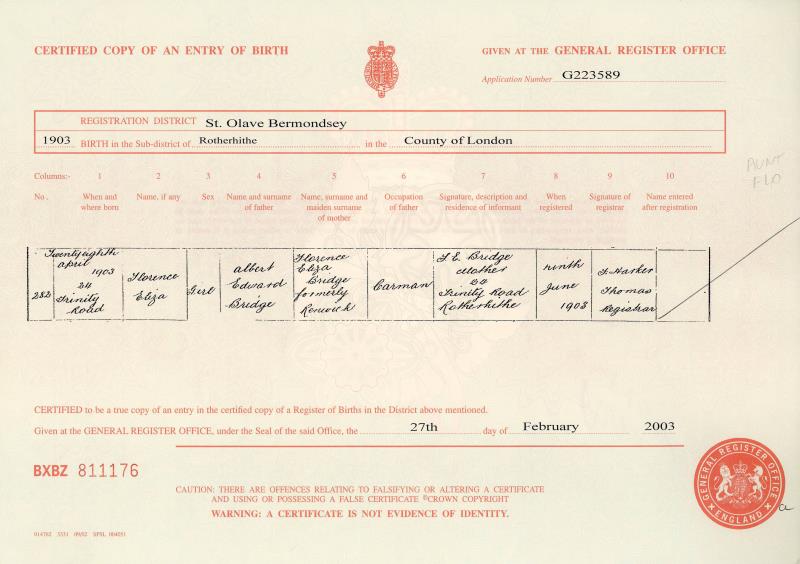 CERTIFIED COPY OF AN ENTRY OF BIRTH
GIVEN AT THE GENERAL REGISTER OFFICE
Application Number G223589
REGISTRATION DISTRICT St. Olave Bermondsey
1903 BIRTH in the Sub-district of Rotherhithe in the County of London
AUNT
FLO
Columns:- 1 2 3 4 5 6 7 8 9 10
No. When and where born Name, if any Sex Name and surname of father Name, surname and maiden surname of mother Occupation of father Signature, description and residence of informant When registered Signature of registrar Name entered after registration
282
Twenty eighth
april
1903
24
Trinity
Road
Florence
Eliza
Girl
albert
Edward
Bridge
Florence
Eliza
Bridge
formerly
Renwick
Carman
F. E. Bridge
Mother
24
Trinity Road
Rotherhithe
ninth
June
1903
Thomas
Registrar
CERTIFIED to be a true copy of an entry in the certified copy of a Register of Births in the District above mentioned.
Given at the GENERAL REGISTER OFFICE, under the Seal of the said Office, the 27th day of February 2003
BXBZ 811176
CAUTION: THERE ARE OFFENCES RELATING TO FALSIFYING OR ALTERING A CERTIFICATE
AND USING OR POSSESSING A FALSE CERTIFICATE ©CROWN COPYRIGHT
WARNING: A CERTIFICATE IS NOT EVIDENCE OF IDENTITY.
GENERAL REGISTER OFFICE
ENGLAND
a